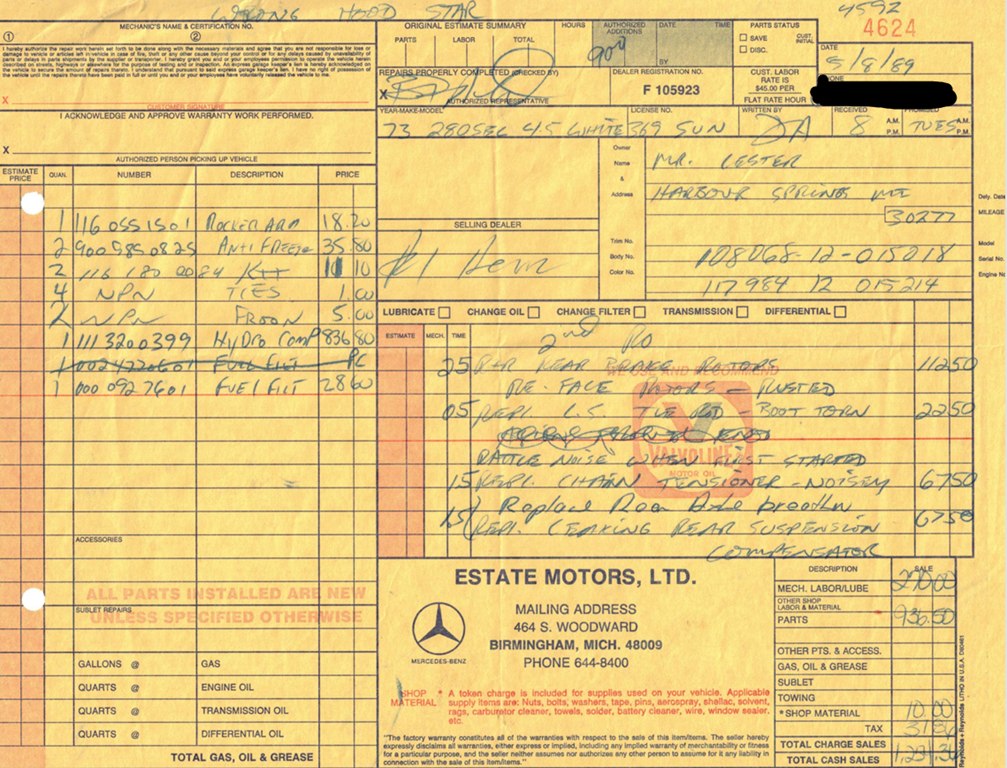 WRONG HOOD STAR
4592
4624
MECHANIC'S NAME & CERTIFICATION NO.
① ②
I hereby authorize the repair work herein set forth to be done along with the necessary materials and agree that you are not responsible for loss or damage to vehicle or articles left in vehicle in case of fire, theft or any other cause beyond your control or for any delays caused by unavailability of parts or delays in parts shipments by the supplier or transporter. I hereby grant you and or your employees permission to operate the vehicle herein described on streets, highways or elsewhere for the purpose of testing and/or inspection. An express garage keeper's lien is hereby acknowledged on
X
CUSTOMER SIGNATURE
I ACKNOWLEDGE AND APPROVE WARRANTY WORK PERFORMED.
X
AUTHORIZED PERSON PICKING UP VEHICLE
ORIGINAL ESTIMATE SUMMARY
PARTS LABOR TOTAL
HOURS
AUTHORIZED ADDITIONS
DATE TIME
BY
900
PARTS STATUS
SAVE
DISC.
CUST. INITIAL
DATE
5/8/89
REPAIRS PROPERLY COMPLETED (CHECKED BY)
X
AUTHORIZED REPRESENTATIVE
DEALER REGISTRATION NO.
F 105923
CUST. LABOR RATE IS $45.00 PER FLAT RATE HOUR
YEAR-MAKE-MODEL LICENSE NO. WRITTEN BY RECEIVED
73 280SEL 4.5 WHITE 369 SUN DA 8 A.M. P.M. TUES A.M. P.M.
Owner Name & Address
MR. LESTER
HARBOUR SPRINGS MI
Dely. Date
MILEAGE
30277
SELLING DEALER
Trim No.
Model
Body No. 108068-12-015018 Serial No.
Color No. 117984 12 015214 Engine No
ESTIMATE PRICE QUAN. NUMBER DESCRIPTION PRICE
1 116 055 1501 ROCKER ARM 18.20
2 900 585 0825 ANTI FREEZE 35.80
2 116 180 0084 KIT 10 10
4 NPN TIES 1.00
2 NPN FREON 5.00
1 111 320 0399 HYDRO COMP 836 80
1 002 477 0601 FUEL FILT
1 000 092 7601 FUEL FILT 28 60
ACCESSORIES
ALL PARTS INSTALLED ARE NEW
UNLESS SPECIFIED OTHERWISE
SUBLET REPAIRS
GALLONS @ GAS
QUARTS @ ENGINE OIL
QUARTS @ TRANSMISSION OIL
QUARTS @ DIFFERENTIAL OIL
TOTAL GAS, OIL & GREASE
LUBRICATE CHANGE OIL CHANGE FILTER TRANSMISSION DIFFERENTIAL
ESTIMATE MECH. TIME
2nd RO
25 R+R REAR BRAKE ROTORS 112 50
WE USE AND RECOMMEND
RE-FACE ROTORS - RUSTED
05 REPL. L.S. TIE ROD - BOOT TORN 22 50
VALVOLINE
MOTOR OIL
RATTLE NOISE WHEN FIRST STARTED
15 REPL. CHAIN TENSIONER - NOISEY 67 50
Replace Rear Axle
15 REPL. LEAKING REAR SUSPENSION 67 50
COMPENSATOR
ESTATE MOTORS, LTD.
MERCEDES-BENZ
MAILING ADDRESS
464 S. WOODWARD
BIRMINGHAM, MICH. 48009
PHONE 644-8400
SHOP MATERIAL * A token charge is included for supplies used on your vehicle. Applicable supply items are: Nuts, bolts, washers, tape, pins, aerospray, shellac, solvent, rags, carburetor cleaner, towels, solder, battery cleaner, wire, window sealer. etc.
"The factory warranty constitutes all of the warranties with respect to the sale of this item/items. The seller hereby expressly disclaims all warranties, either express or implied, including any implied warranty of merchantability or fitness for a particular purpose, and the seller neither assumes nor authorizes any other person to assume for it any liability in connection with the sale of this item/items."
DESCRIPTION SALE
MECH. LABOR/LUBE 270.00
OTHER SHOP LABOR & MATERIAL
PARTS 936.50
OTHER PTS. & ACCESS.
GAS, OIL & GREASE
SUBLET
TOWING
*SHOP MATERIAL 10.00
TAX
TOTAL CHARGE SALES
TOTAL CASH SALES
Reynolds + Reynolds LITHO IN U.S.A.